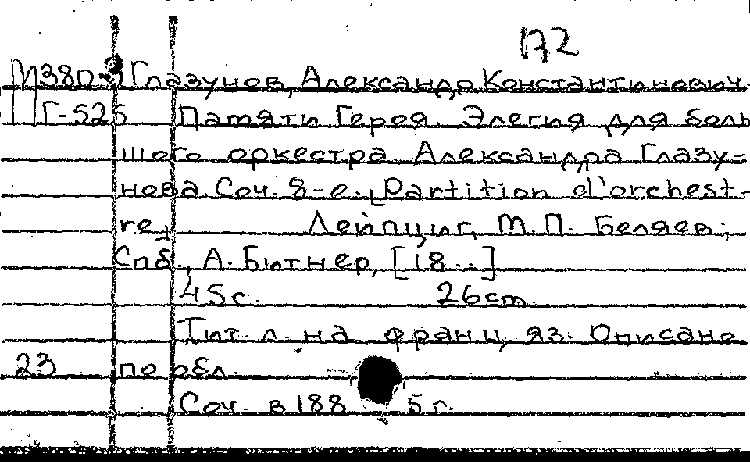 172
М380-3 Глазунов, Александр Константинович.
Г-525 Памяти Героя. Элегия для боль
шого оркестра Александра Глазу-
нова Соч. 8-е. [Partition d'orchest-
re] Лейпциг, М.П. Беляев;
Спб., А. Битнер, [18..]
45с. 26cm
Тит. л. на франц. яз. Описано
23 по обл.
Соч. в 188 5 г.